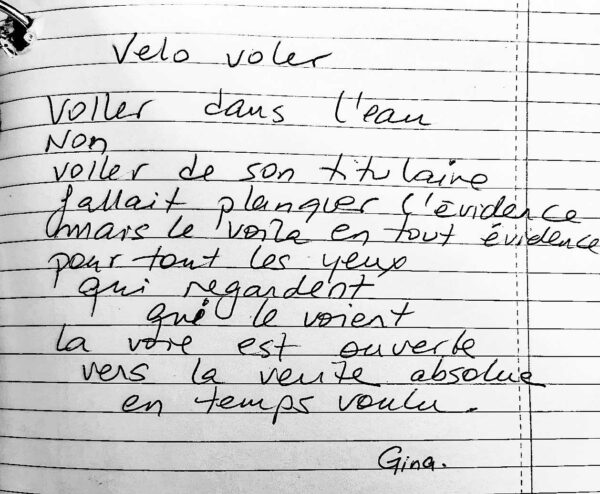 Velo voler
Voller dans l'eau
Non
voller de son titulaire
fallait planquer l'évidence
mais le voila en tout évidence
pour tout les yeux
qui regardent
qui le voient
la voie est ouverte
vers la verite absolue
en temps voulu.
Gina.